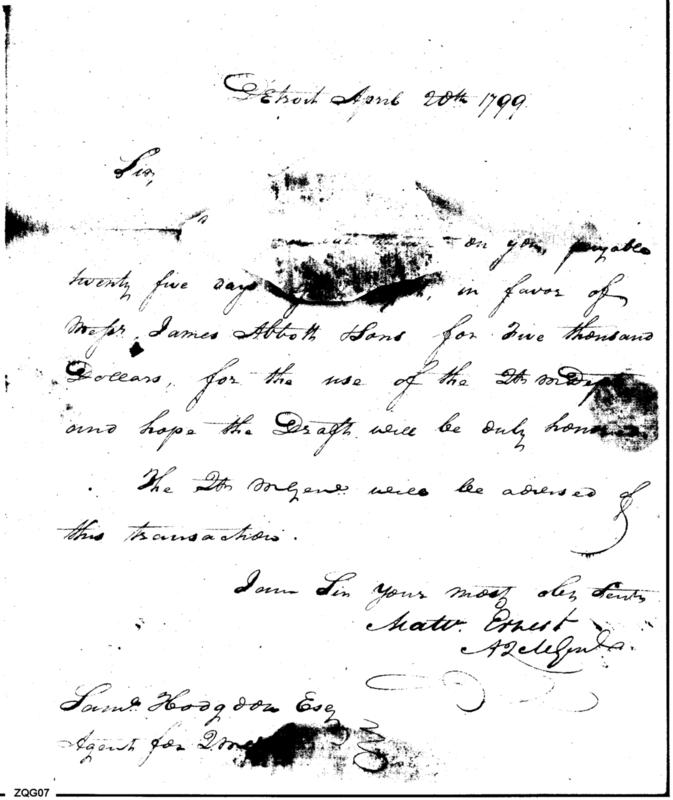 Detroit April 20th 1799
Sir,
on you, payable
twenty five days in favor of
Messr. James Abbott & Sons for Five thousand
Dollars, for the use of the Qr M Dep
and hope the Draft will be duly hono
The Qr M Genl. will be advised of
this transaction.
I am Sir your most obt Servt
Matw. Ernest
A Q M Genl.
Saml. Hodgdon Esq
Agent for Q M
ZQG07